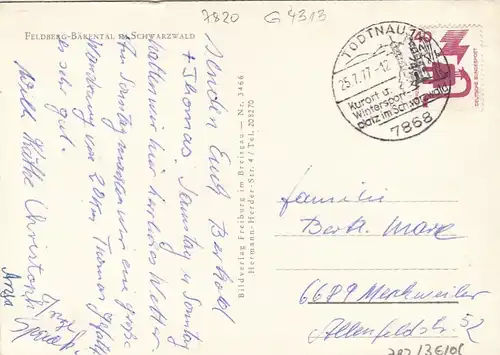 7820 G4313
FELDBERG-BÄRENTAL IM SCHWARZWALD
TODTNAU
25.7.77-12
Kurort u.
Wintersport-
platz im Schwarzwald
7868
40
DEUTSCHE BUNDESPOST
senden Euch Berthold
+ Thomas. Samstag u. Sonntag
hatten wir hier herrliches Wetter.
Am Sonntag machten wir eine große
Wanderung von 20 km, Thomas gefällt
es sehr gut.
Willi Käthe Christoph
Anja
Bildverlag Freiburg im Breisgau – Nr. 3466
Hermann-Herder-Str. 4 / Tel. 208270
Familie
Berth. Marx
6689 Merchweiler
Allenfeldstr. 52